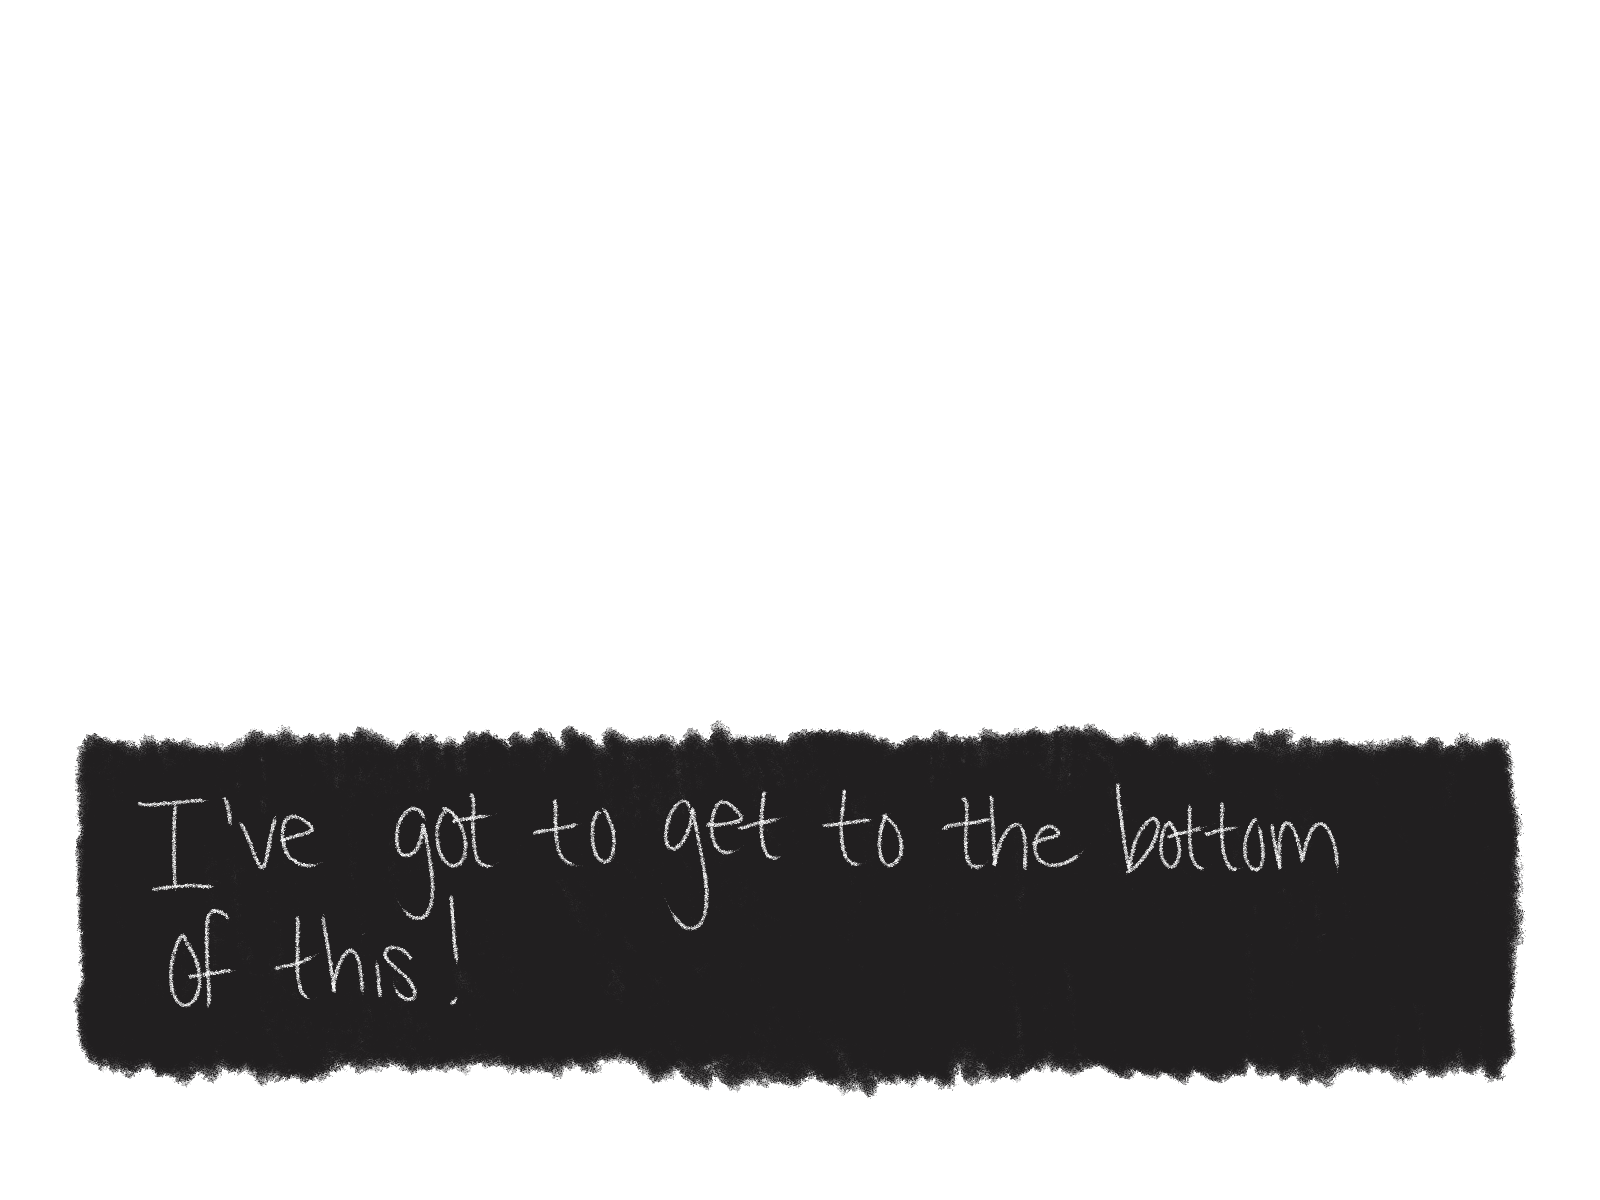 I've got to get to the bottom
of this!